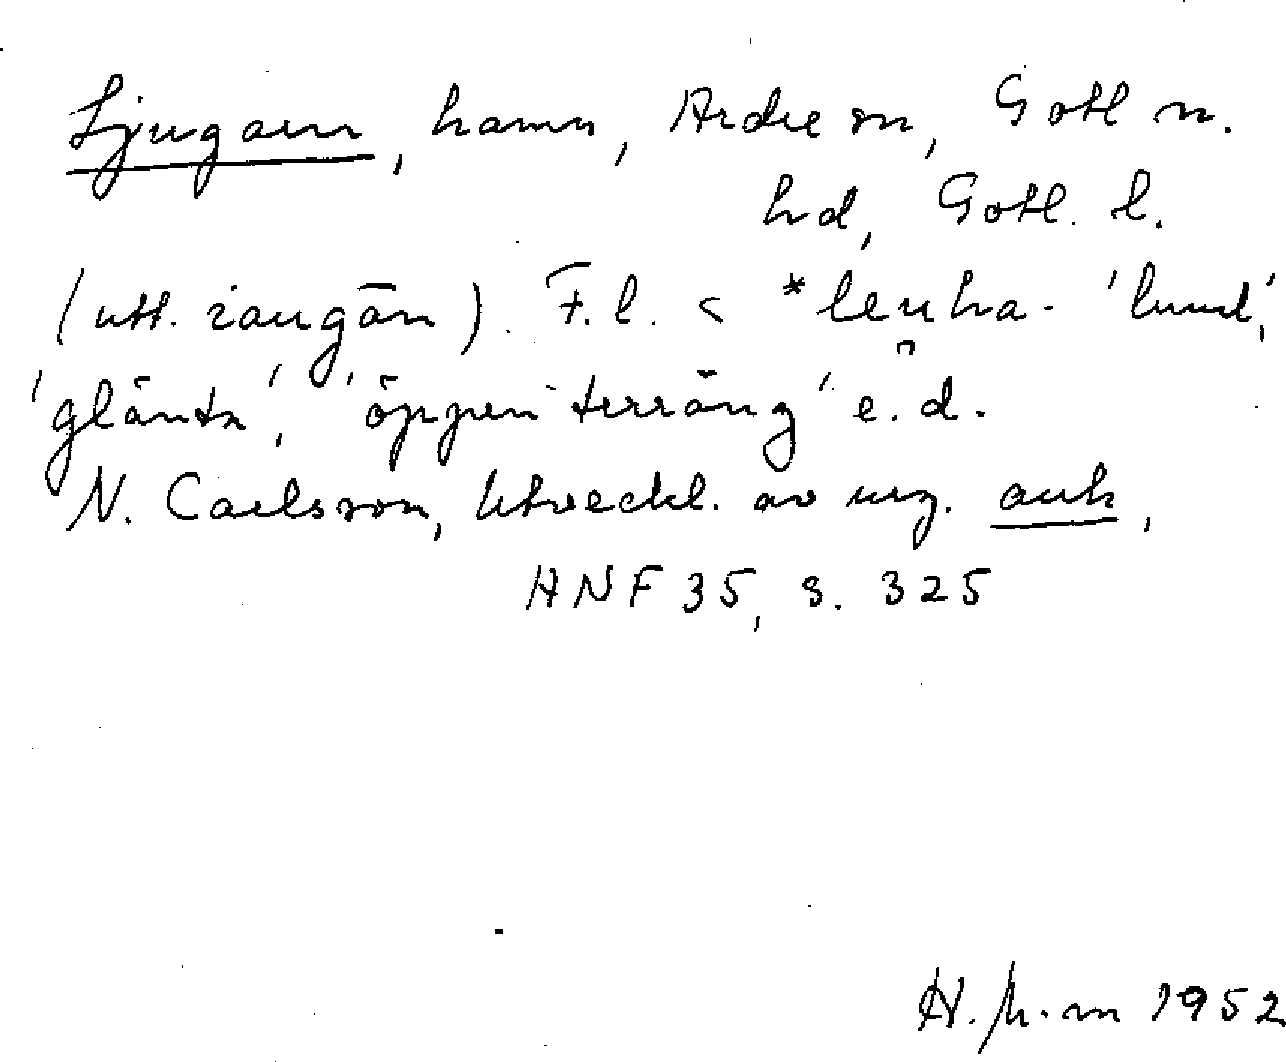 Ljugarn, hamn, Ardre sn, Gotl n.
hd, Gotl. l.
(utt. iaugān). F.l. < *leu̯ha- 'lund',
'glänta', 'öppen terräng' e.d.
N. Carlsson, Utveckl. av urg. auh,
ANF 35, s. 325
1952